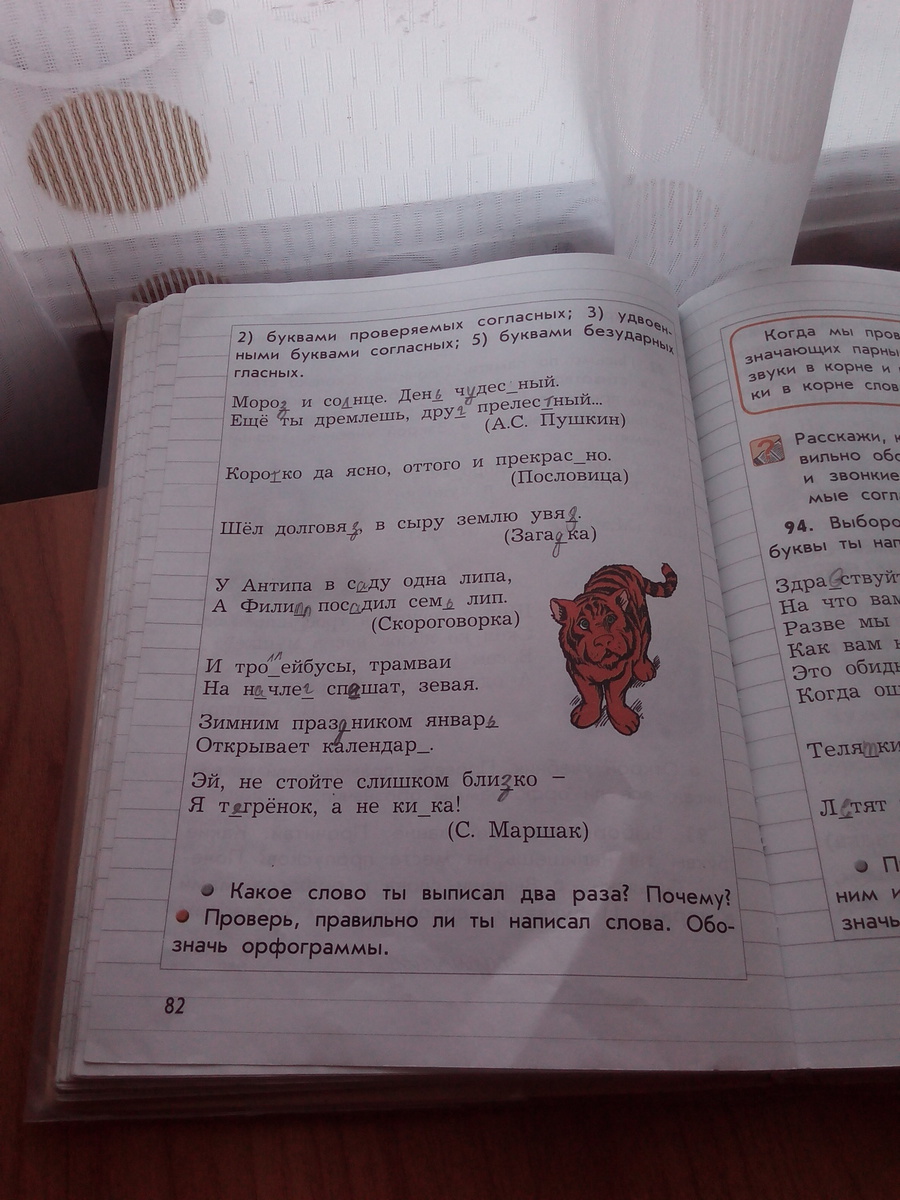 2) буквами проверяемых согласных; 3) удвоен-
ными буквами согласных; 5) буквами безударных
гласных.
Мороз и солнце. День чудес_ный.
Ещё ты дремлешь, друг прелестный...
(А.С. Пушкин)
Коротко да ясно, оттого и прекрас_но.
(Пословица)
Шёл долговяз, в сыру землю увяз.
(Загадка)
У Антипа в саду одна липа,
А Филипп посадил семь лип.
(Скороговорка)
И тролл_ейбусы, трамваи
На начлег спешат, зевая.
Зимним праздником январь
Открывает календар_.
Эй, не стойте слишком близко –
Я тегрёнок, а не ки_ка!
(С. Маршак)
• Какое слово ты выписал два раза? Почему?
• Проверь, правильно ли ты написал слова. Обо-
значь орфограммы.
82
Когда мы
значающих
звуки в корне и
ки в корне
Расскажи,
вильно
и звонкие
94.
буквы ты
На что
Разве мы
Как вам
Это
Когда